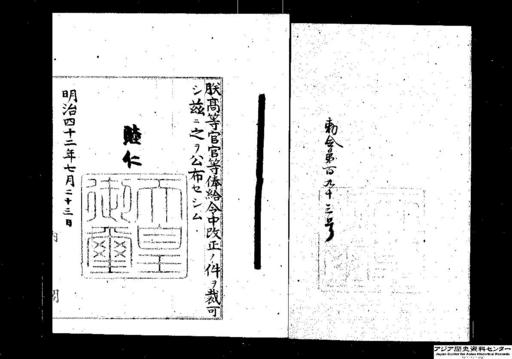 勅令第百九十三号
朕高等官官等俸給令中改正ノ件ヲ裁可
シ茲ニ之ヲ公布セシム
睦仁
天皇御璽
明治四十二年七月二十三日
内閣
アジア歴史資料センター
Japan Center for Asian Historical Records